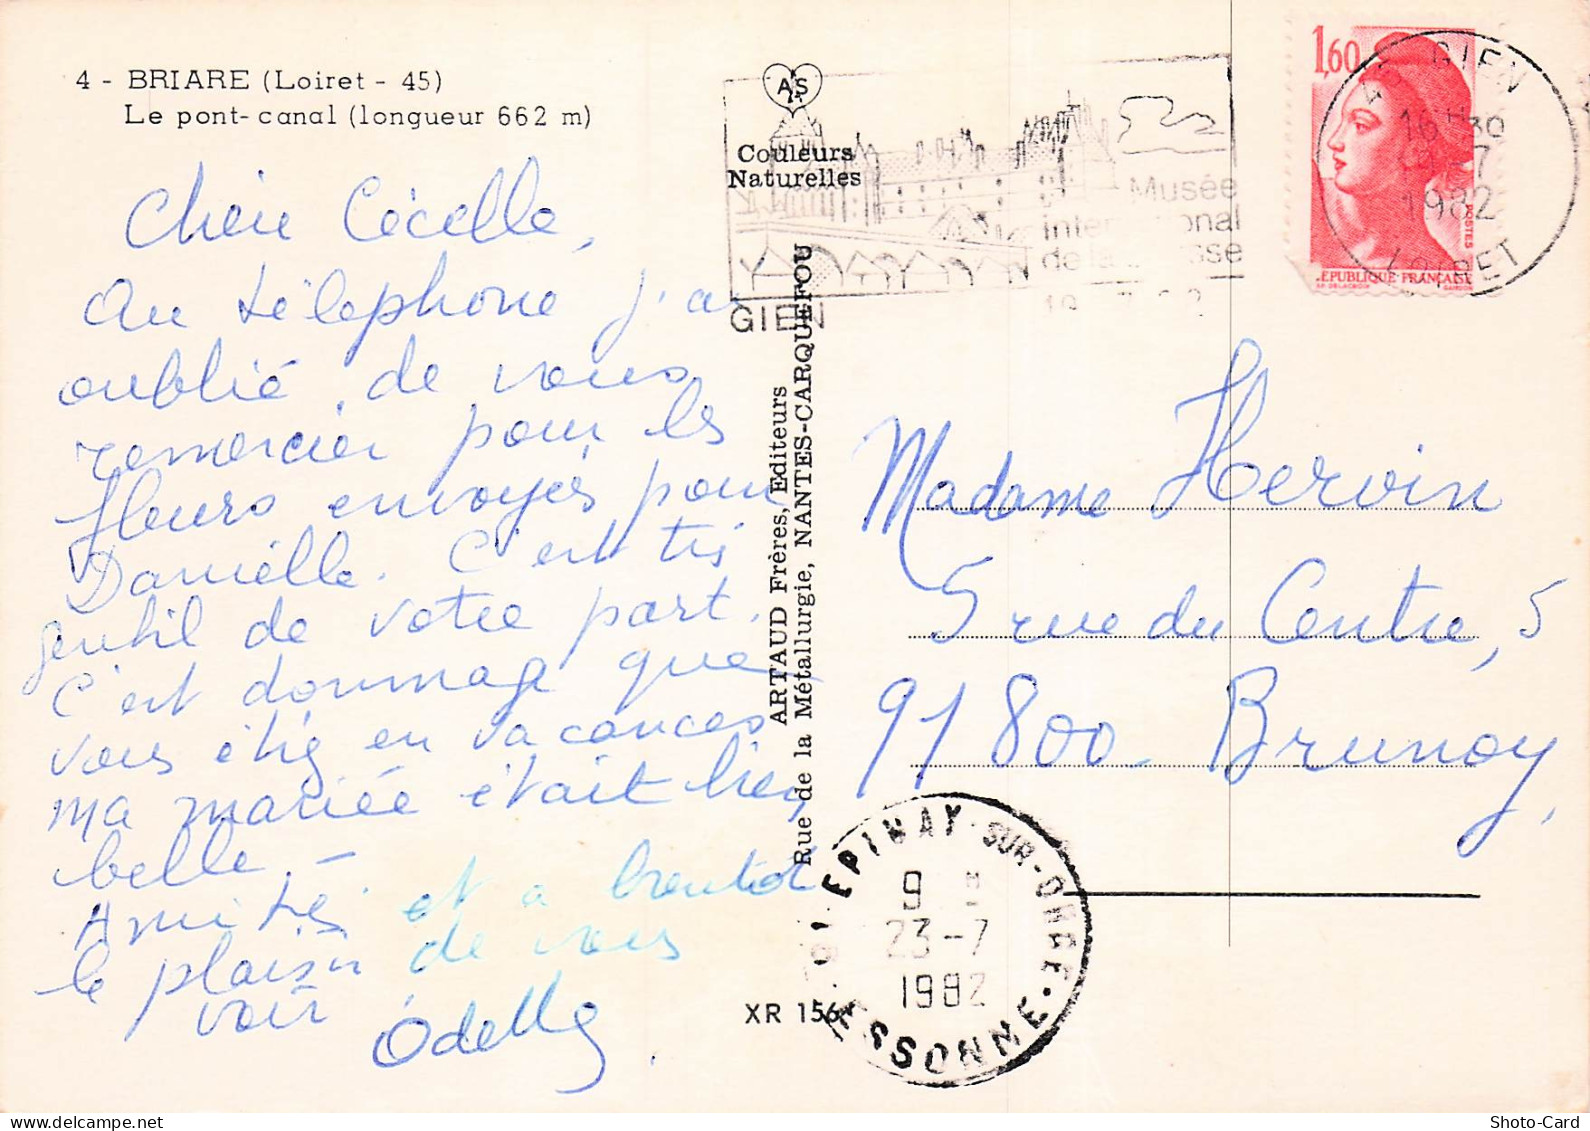 4 - BRIARE (Loiret - 45)
Le pont-canal (longueur 662 m)
Chère Cécelle,
Au téléphone j'ai
oublié de vous
remercier pour les
fleurs envoyés pour
Danielle. C'est très
gentil de votre part.
C'est dommage que
vous étiez en vacances
ma mariée était bien
belle -
Amitiés et a bientot
le plaisir de vous
voir Odette
AS
Couleurs
Naturelles
ARTAUD Frères, Editeurs
Rue de la Métallurgie, NANTES-CARQUEFOU
XR 156
Musée
International
de la Chasse
GIEN
1,60
POSTES
REPUBLIQUE FRANÇAISE
45 GIEN
16 H 30
7
1982
LOIRET
Madame Hervin
5 rue du Centre, 5
91800 - Brunoy,
91 EPINAY-SUR-ORGE
9 H
23-7
1982
ESSONNE
Shoto-Card
delcampe.net